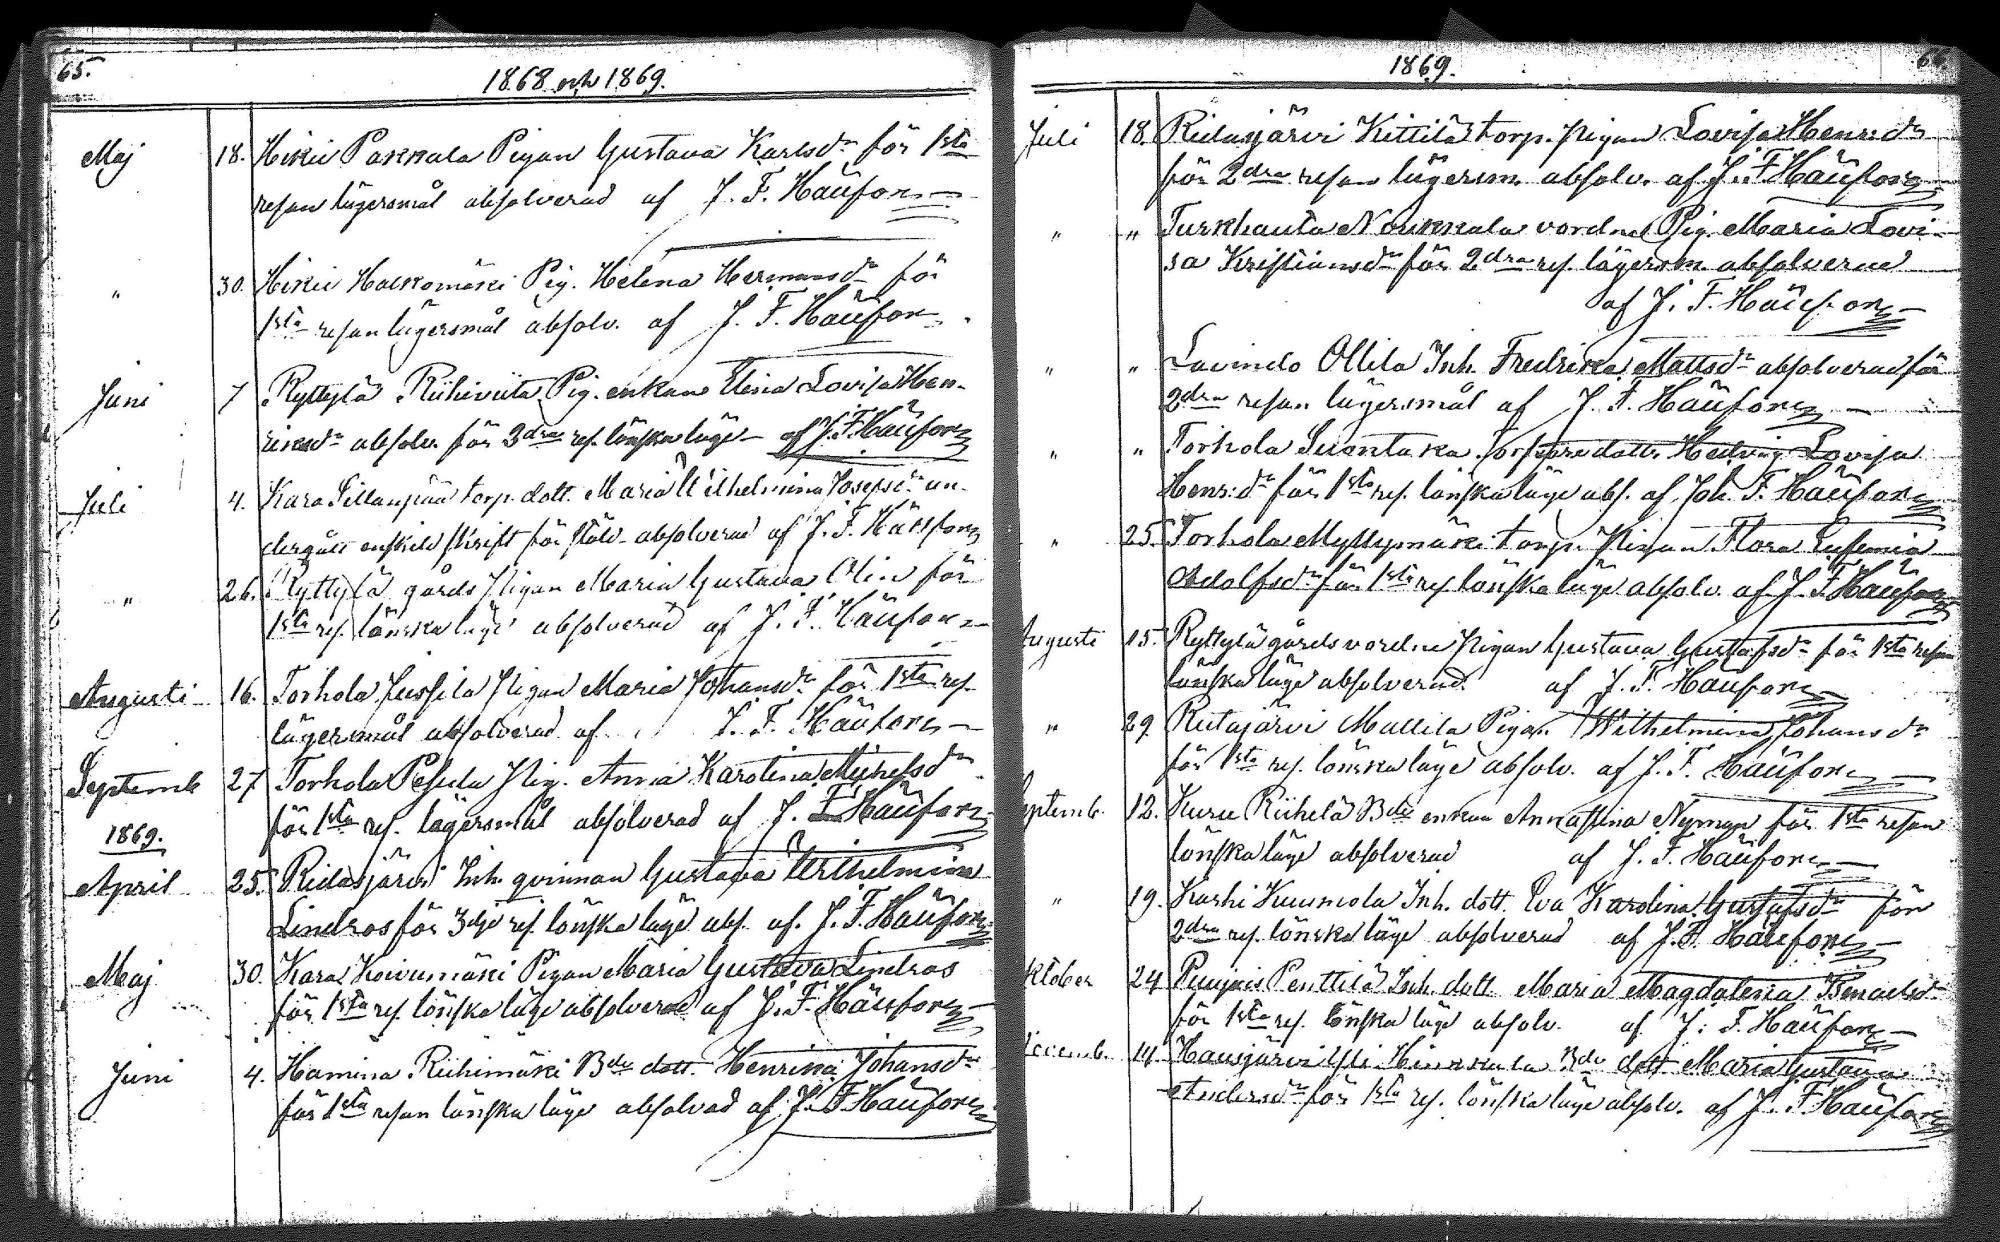 65.
1868 och 1869.
Maj 18. Hikiä Pakkala Pigan Gustava Karlsdr för 1sta
resan lägersmål absolverad af J. F. Häüfors
" 30. Hikiä Hackomäki Pig. Helena Hermansdr för
1sta resan lägersmål absolv. af J. F. Häüfors
Juni 7 Ryttylä Riihiviita Pig. enkan Elina Lovisa Hen-
riksdr absolv. för 2dra res. lönskaläge af J. F. Häüfors
Juli 4. Kara Sillanpää torp. dott. Maria Wilhelmina Josefsdr un-
dergått enskild skrift för stöld absolverad af J. F. Häüfors
" 26. Ryttylä gårds Pigan Maria Gustava Olin för
1sta res. lönskaläge absolverad af J. F. Häüfors
Augusti 16. Torhola Jussila Pigan Maria Johansdr för 1sta res.
lägersmål absolverad af J. F. Häüfors
Septemb 27 Torhola Pesula Pig. Anna Karolina Michelsdr
för 1sta res. lägersmål absolverad af J. F. Häüfors
1869.
April 25. Ridasjärvi Inh. qvinnan Gustava Wilhelmina
Lindros för 3dje res. lönskaläge abs. af J. F. Häüfors
Maj 30. Kara Koivumäki Pigan Maria Gustava Lindros
för 1sta res. lönskaläge absolverad af J. F. Häüfors
Juni 4. Hamina Riihimäki Bde dott. Henrika Johansdr
för 1sta resan lönskaläge absolvad af J. F. Häüfors
66
1869.
Juli 18. Ridasjärvi Kittilä torp. Pigan Lovisa Henr:dr
för 2dra resan lägersm. absolv. af J. F. Häüfors
" " Turkhauta Noukkala vordne Pig. Maria Lovi-
sa Kristiansdr för 2dra res. lägersm. absolverad
af J. F. Häüfors
" " Lavindo Ollila Inh. Fredrika Mattsdr absolverad för
2dra resan lägersmål af J. F. Häüfors
" " Torhola Suontaka Torpare dottr Hedvig Lovisa
Henr:dr för 1sta res. lönskaläge abs. af Joh. F. Häüfors
" 25. Torhola Myllymäki torp. Pigan Flora Eufemia
Adolfsdr för 1sta res. lönskaläge absolv. af J. F. Häüfors
Augusti 15. Ryttylä gårds vordne Pigan Gustava Gustafsdr för 1sta resan
lönskaläge absolverad. af J. F. Häüfors
" 29 Ridasjärvi Mallila Pigan Wilhelmina Johansdr
för 1sta res. lönskaläge absolv. af J. F. Häüfors
ptemb. 12. Kuru Riihelä Bde enkan Anna Stina Nyman för 1sta resan
lönskaläge absolverad af J. F. Häüfors
" 19. Karhi Kuumola Inh. dott. Eva Karolina Gustafsdr för
2dra res. lönskaläge absolverad af J. F. Häüfors
ktober 24 Puujois Penttilä Inh. dott Maria Magdalena
för 1sta res. lönskaläge absolv. af J. F. Häüfors
ovemb. 14. Hausjärvi Yli Hinkkala Bde dott Maria Gustava
Andersdr för 1sta res. lönskaläge absolv. af J. F. Häüfors